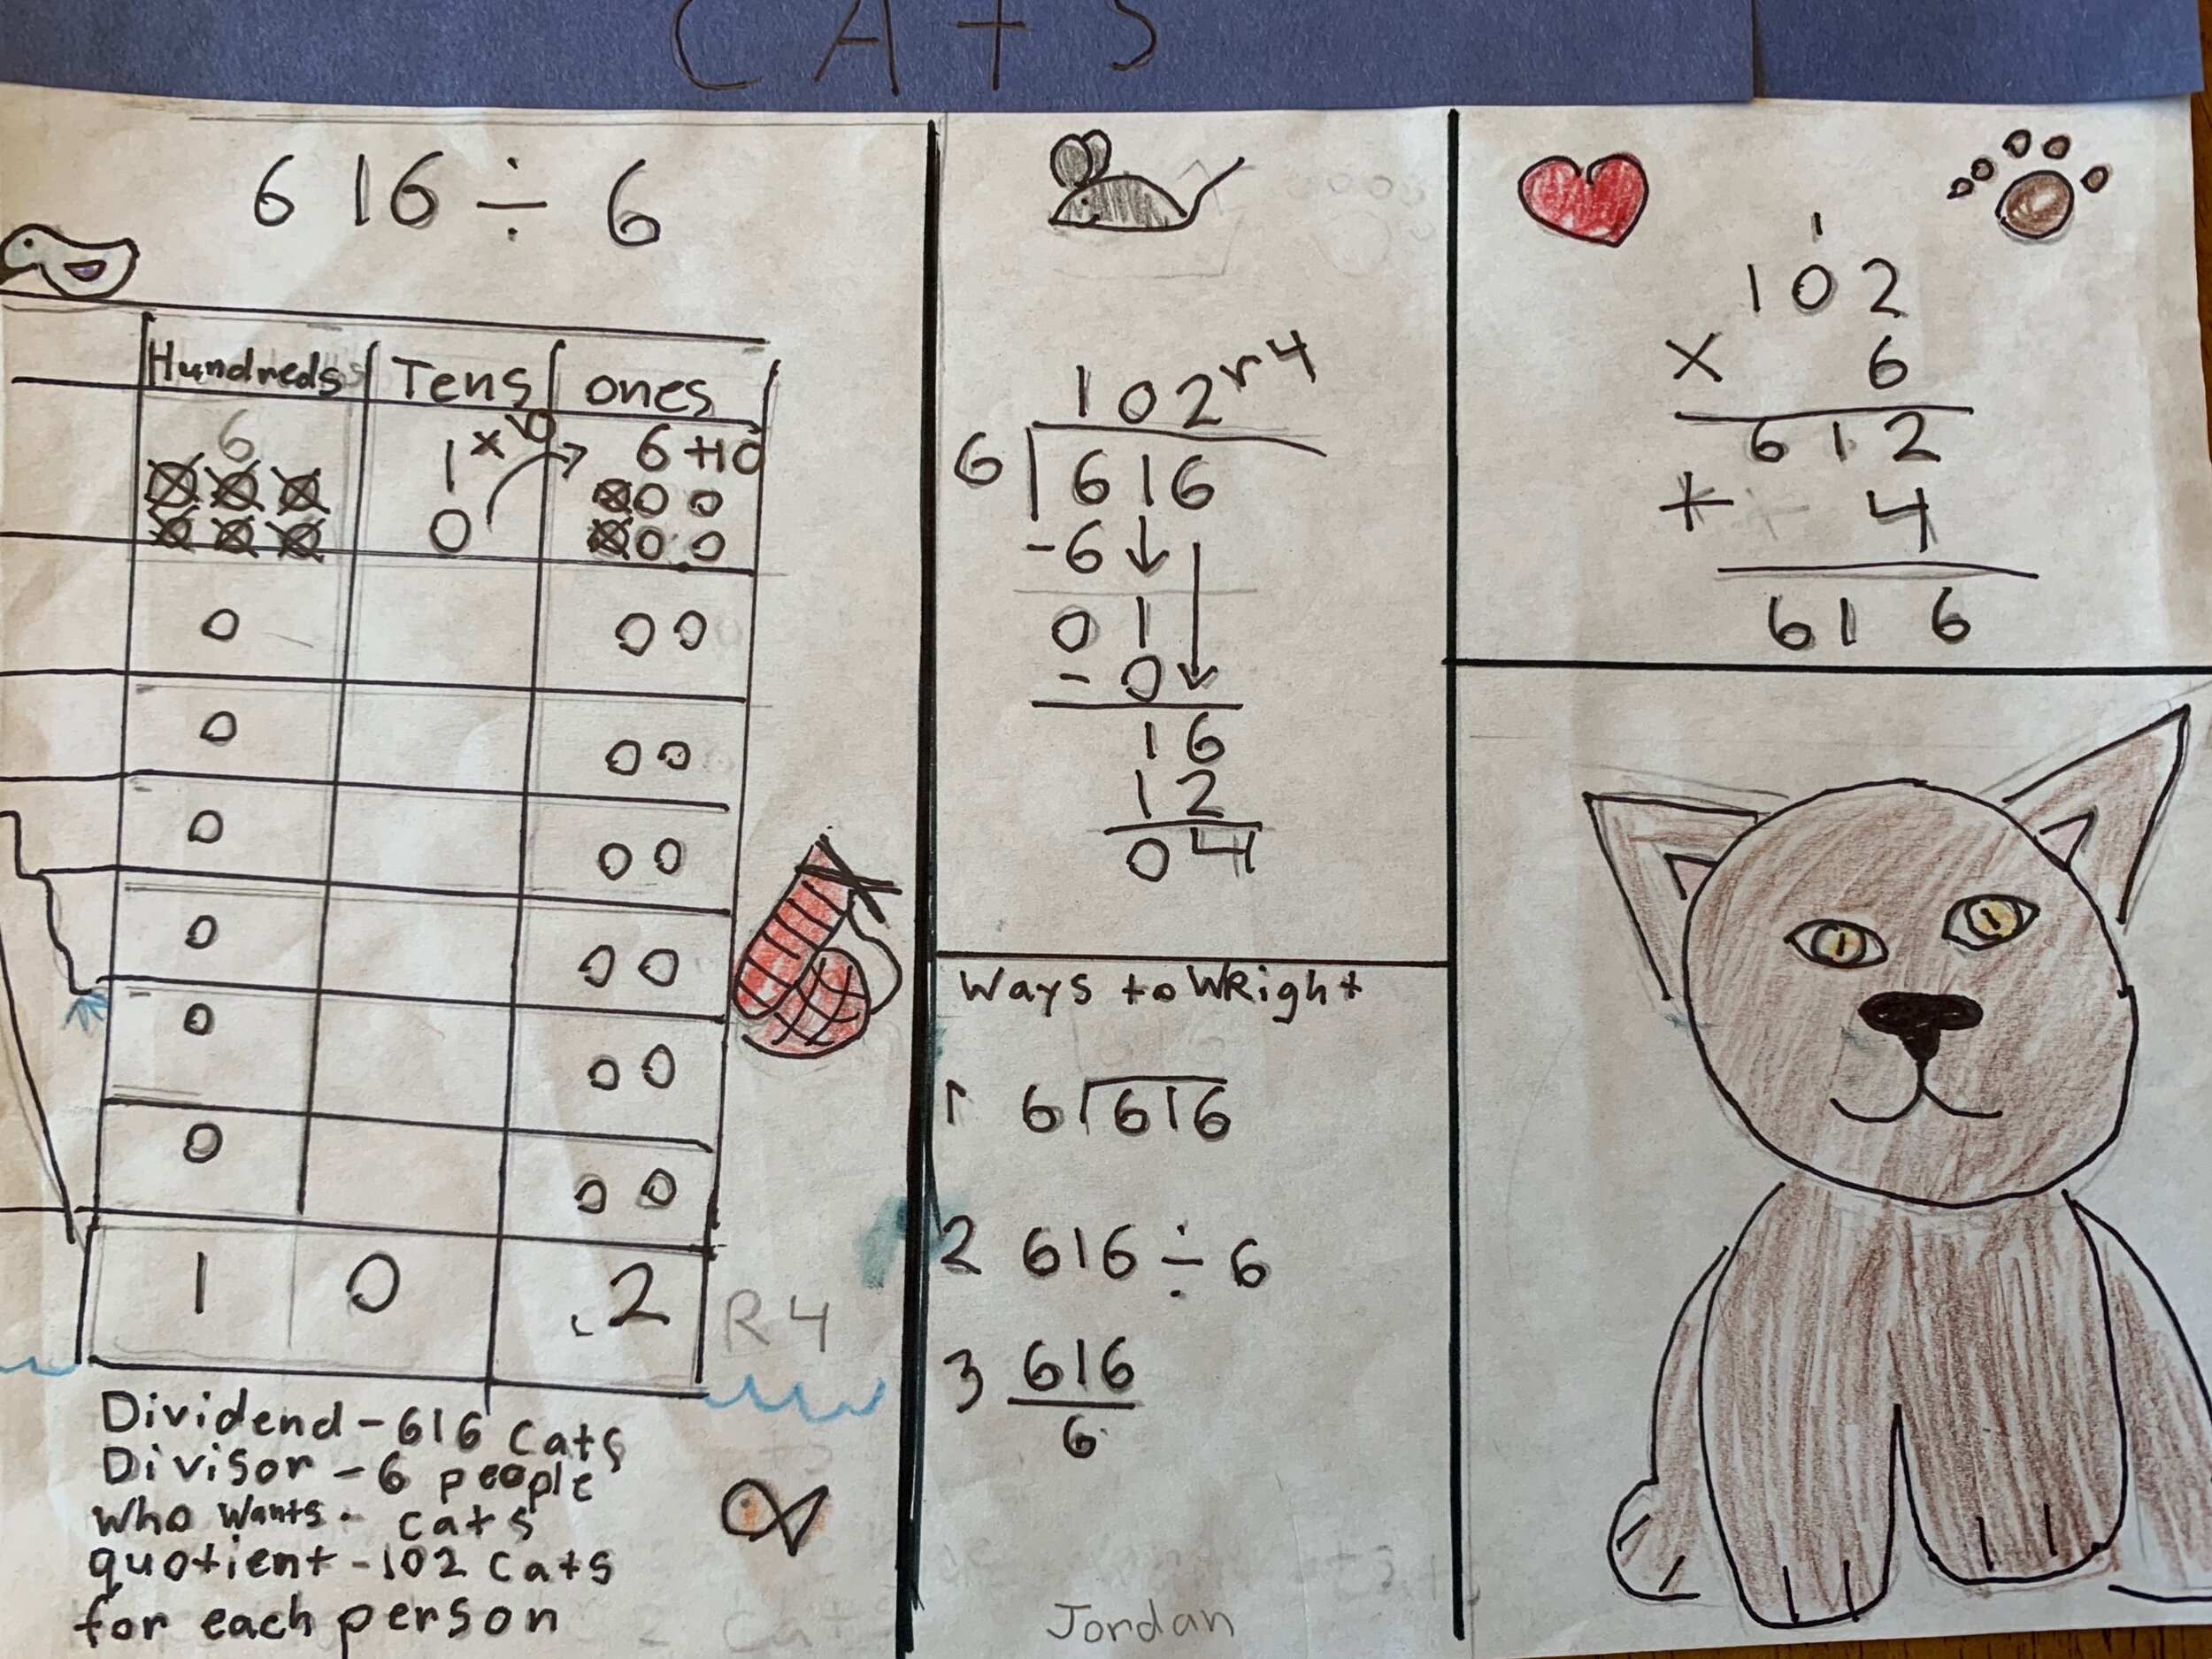 CATS
616 ÷ 6
Hundreds Tens ones
6 1 x10 6 +10
0
0 00
0 00
0 00
0 00
0 00
0 00
1 0 .2 R4
Dividend - 616 Cats
Divisor - 6 people
who wants - cats
quotient - 102 Cats
for each person
102 r4
6 616
-6
01
-0
16
12
04
Ways to WRight
1 6 616
2 616 ÷ 6
3 616
6
Jordan
1
102
x 6
612
+ 4
616